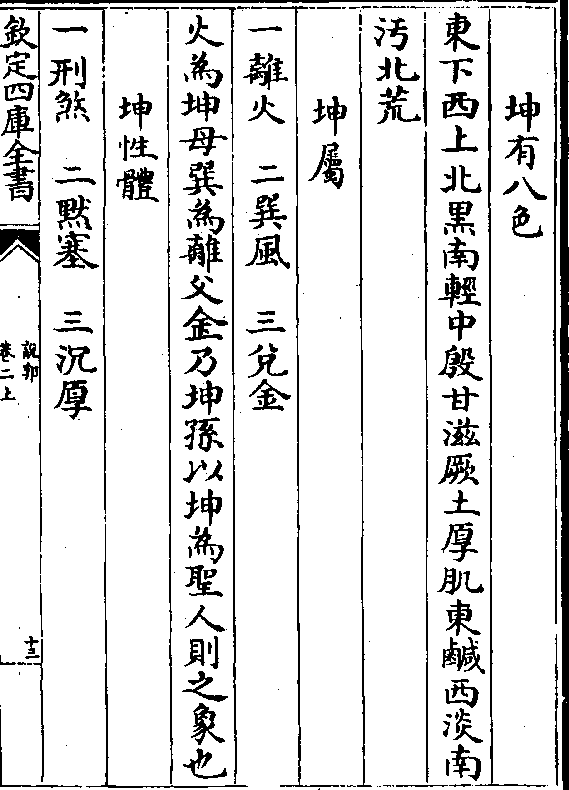 坤有八色
東下西上北黒南輕中殷甘滋厥土厚肌東鹹西淡南
汚北荒
坤屬
一離火　二巽風　三兌金
火為坤母巽為離父金乃坤孫以坤為聖人則之象也
坤性體
一刑煞　二黙塞　三沉厚
欽定四庫全書
說郛
卷二上
十三